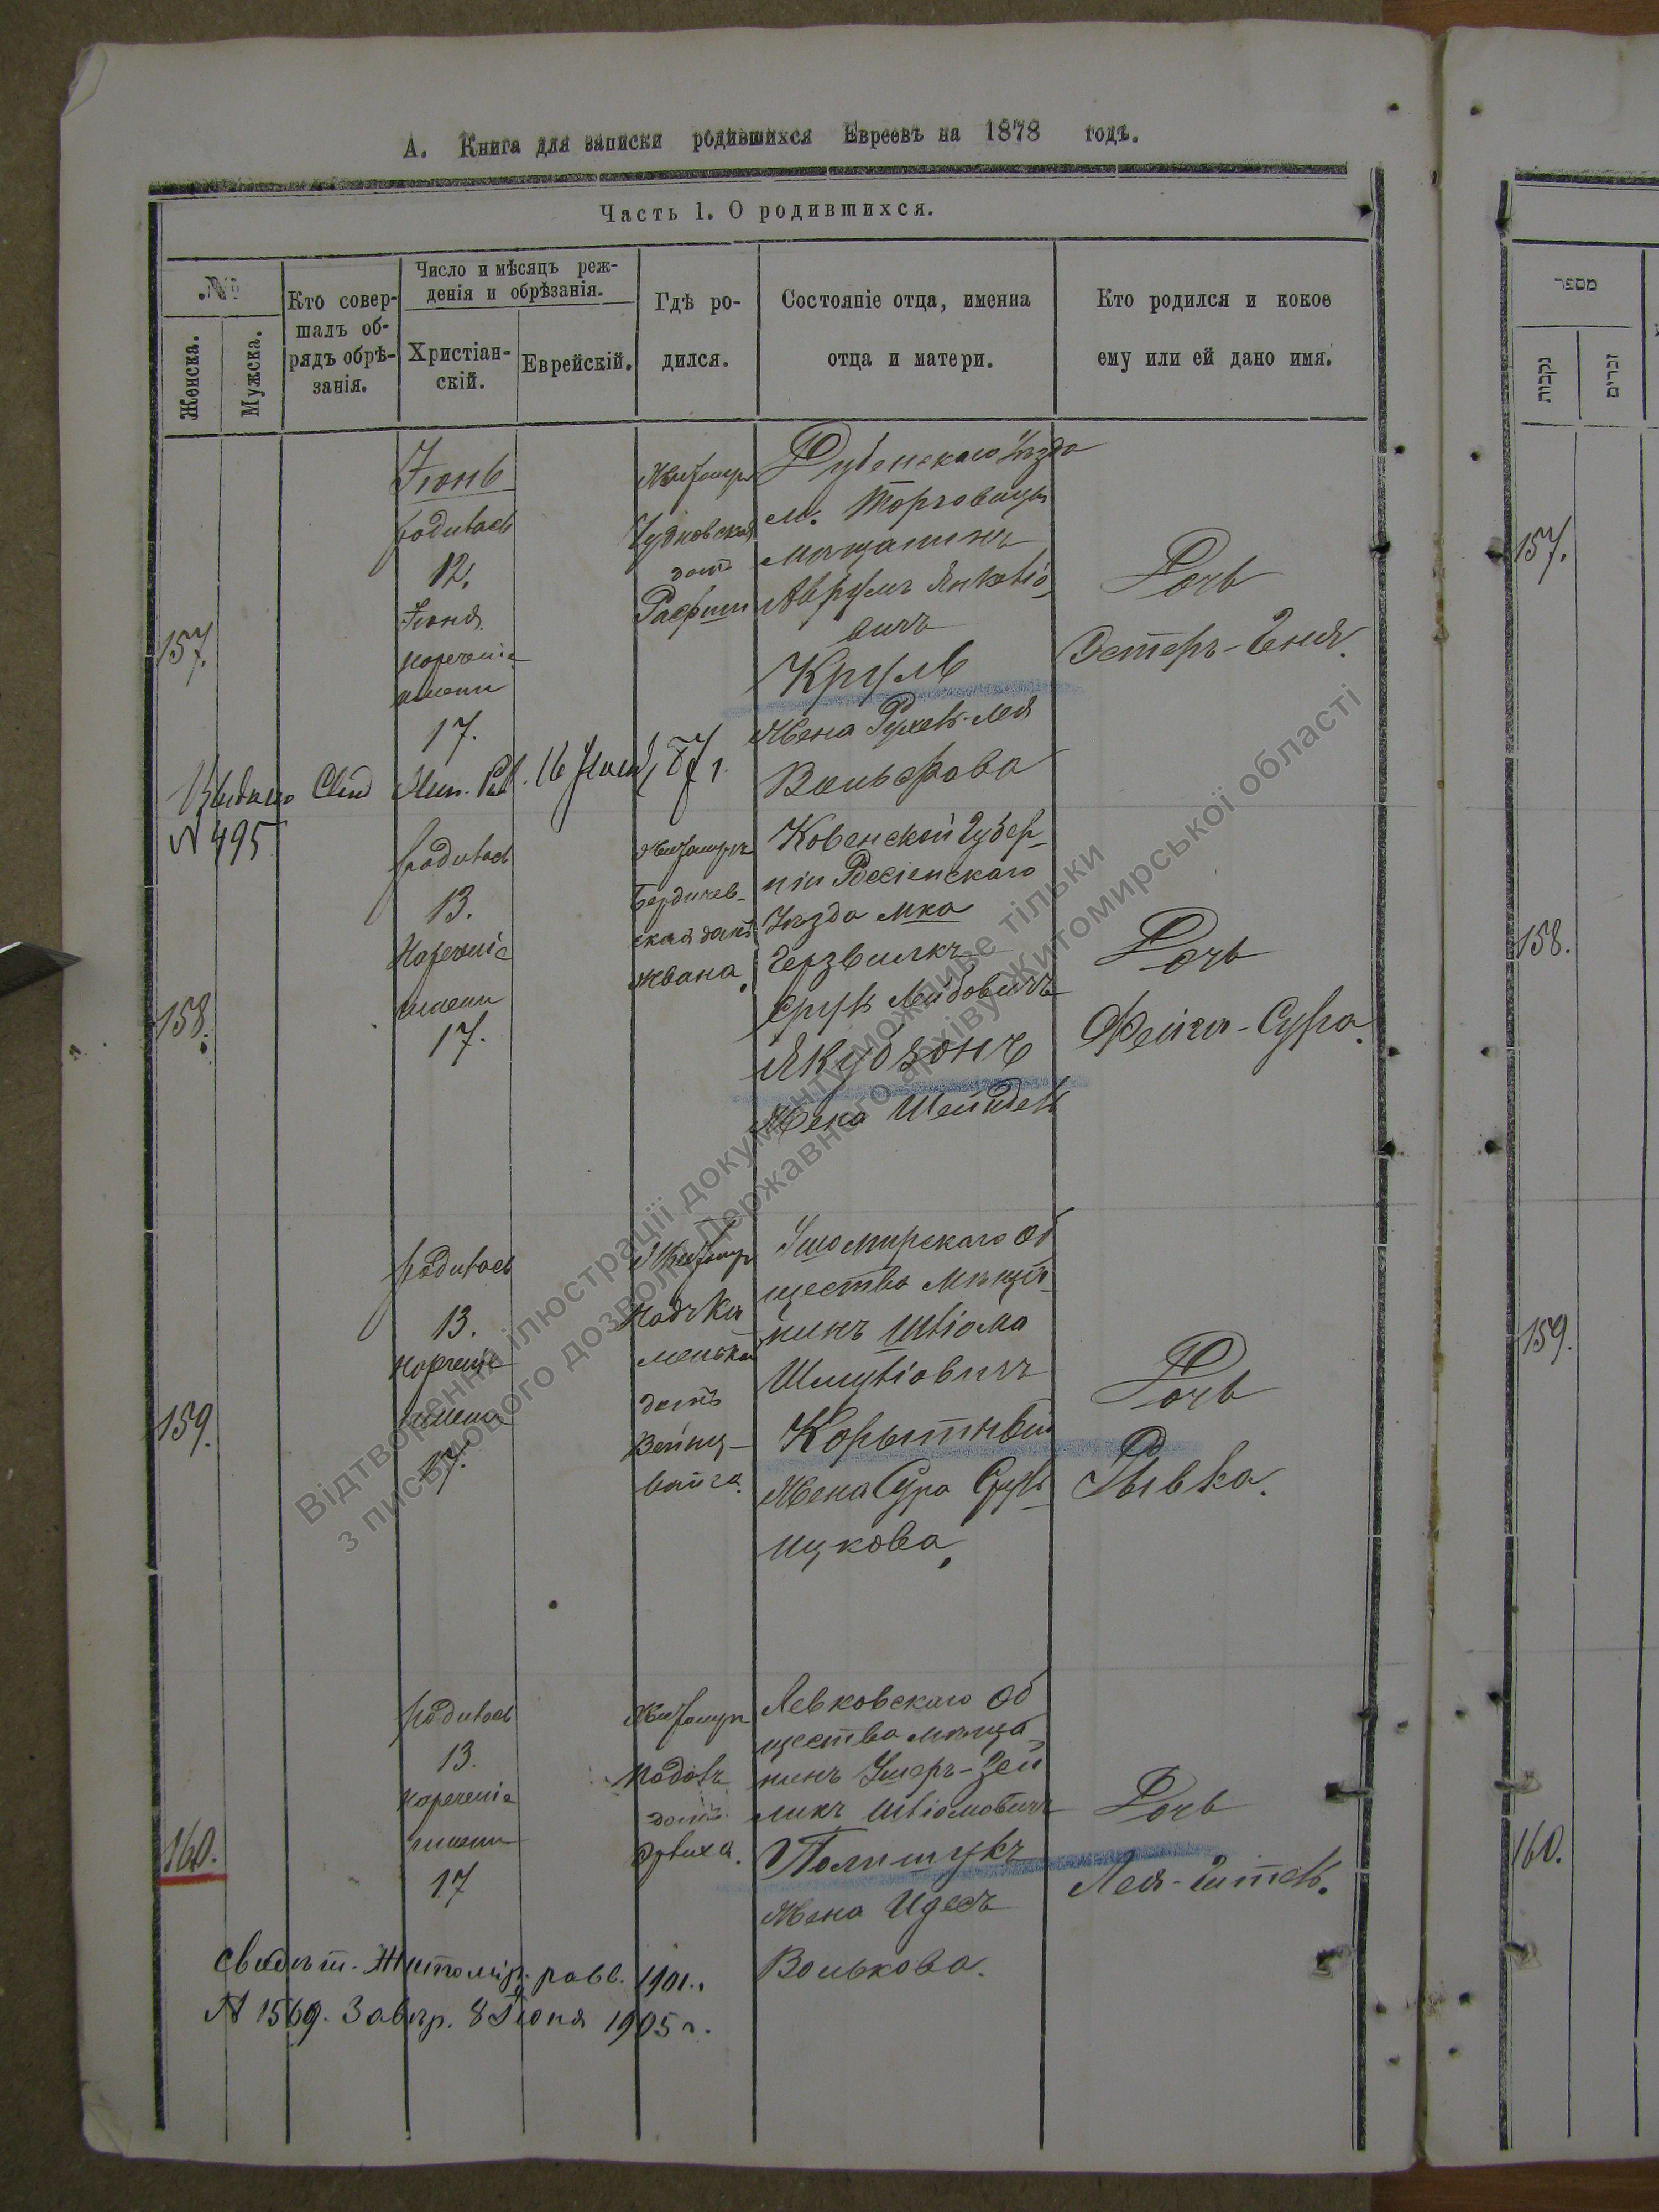 А. Книга для записки родившихся Евреевъ на 1878 годъ.
Часть 1. О родившихся.
№
Женска.
Мужска.
Кто совер-
шалъ об-
рядъ обрѣ-
занія.
Число и мѣсяцъ реж-
денія и обрѣзанія.
Христіан-
скій.
Еврейскій.
Гдѣ ро-
дился.
Состояніе отца, именна
отца и матери.
Кто родился и кокое
ему или ей дано имя.
מספר
נקבות
זכרים
157.
Іюнь
родилась
12.
Іюня
нареченіе
имени
17.
Житомиръ
Чудновская
домъ
Дубенскаго Уѣзда
м. Торговицы
мѣщанинъ
Аврумъ Янкеліо
вичъ
Круль
Жена Рухель-Лея
Вольфова
Дочь
Эстеръ-Геня.
157.
16 1887 г.
№ 495
158.
родилась
13.
Нареченіе
имени
17.
Житомиръ
Бердичев-
ская домъ
Жвана.
Ковенской Губер-
ніи Россіенскаго
Уѣзда мка
Герзвилкъ
Сруль Лейбовичъ
Якубзонъ
Жена Шейндель
Дочь
Фейга-Сура.
158.
159.
родилась
13.
нареченіе
имени
17.
Житомиръ
домъ
Вайнц-
вайга.
Ушомирскаго Об
щества мѣща-
нинъ Шліома
Шмуліовичъ
Корытный
Жена Сура Сруль
ицкова.
Дочь
Рывка.
159.
160.
родилась
13.
нареченіе
имени
17
Житомиръ
домъ
Левковскаго Об
щества мѣща-
нинъ Ушеръ-Зей
ликъ Шліомовичъ
Полищукъ
Жена Идесъ
Волькова.
Дочь
Лея-Гитель.
160.
Свидѣт. Житомір. равв. 1901.
№ 1569. Завѣр. 8 Іюня 1905 г.
Відтворення ілюстрації документу можливе тільки
з письмового дозволу Державного архіву Житомирської області